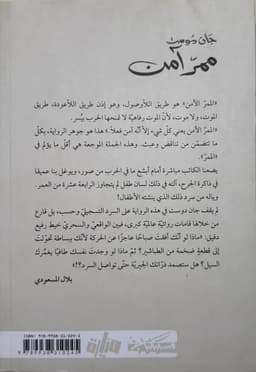 جان دوست
ممرّ آمن
«الممرّ الآمن» هو طريق اللاوصول، وهو إذن طريق اللاعودة، طريق
الموت، ولا موت، لأنّ الموت رفاهيّة لا تمنحها الحرب بيُسر.
«الممرّ الآمن يعني كلّ شيء إلاّ أنّه آمن فعلاً.» هذا هو جوهر الرواية، بكلّ
ما تتضمّن من تناقض وعبث. وهذه الجملة الموجعة هي أقلّ ما يؤلم في
«الممرّ».
يضعنا الكاتب مباشرة أمام أبشع ما في الحرب من صور، ويوغل بنا عميقا
في ذاكرة الجرح، ألمه في ذلك لسان طفل لم يتجاوز الرابعة عشرة من العمر.
وياله من سرد ذلك الذي ينشئه الأطفال!
لم يقف جان دوست في هذه الرواية على السرد التسجيليّ وحسب، بل قارع
من خلالها قامات روائيّة عالميّة كبرى، فبين الواقعيّ والسحريّ خيط رفيع
دقيق: «ماذا لو أنّك أفقت صباحا عاجزًا عن الحركة لأنّك ببساطة تحوّلت
إلى قطعةٍ ضخمة من الطباشير؟ ثمّ ماذا لو وجدت نفسك طافيًا يغمرك
السيل؟ هل ستصمد ذرّاتك الجيريّة حتّى تواصل السرد؟»
بلال المسعودي